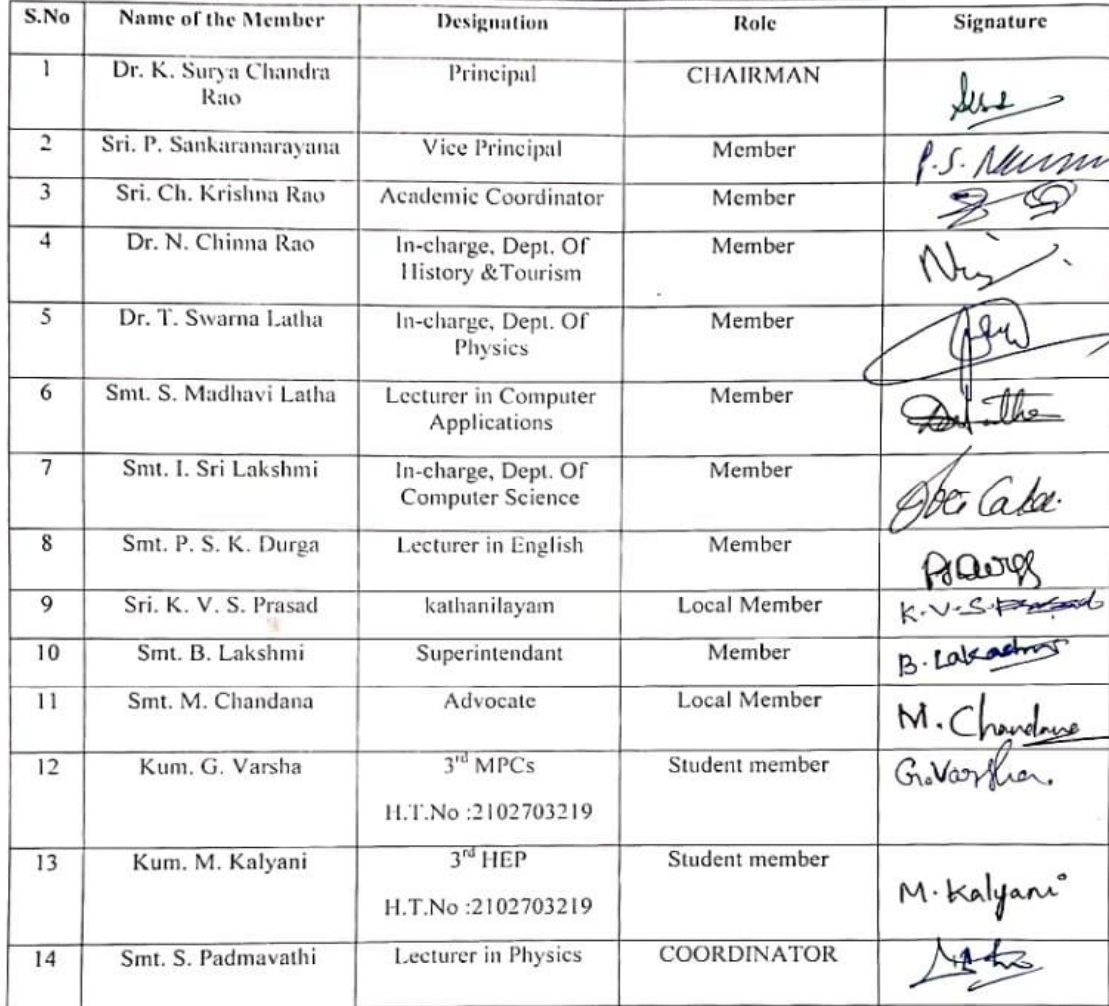 S.No Name of the Member Designation Role Signature
1 Dr. K. Surya Chandra Principal CHAIRMAN
Rao
2 Sri. P. Sankaranarayana Vice Principal Member P.S.
3 Sri. Ch. Krishna Rao Academic Coordinator Member
4 Dr. N. Chinna Rao In-charge, Dept. Of Member
History &Tourism
5 Dr. T. Swarna Latha In-charge, Dept. Of Member
Physics
6 Smt. S. Madhavi Latha Lecturer in Computer Member
Applications
7 Smt. I. Sri Lakshmi In-charge, Dept. Of Member
Computer Science
8 Smt. P. S. K. Durga Lecturer in English Member
9 Sri. K. V. S. Prasad kathanilayam Local Member K.V.S.Prasad
10 Smt. B. Lakshmi Superintendant Member B. Lakshmi
11 Smt. M. Chandana Advocate Local Member M. Chandana
12 Kum. G. Varsha 3rd MPCs Student member G.Varsha.
H.T.No :2102703219
13 Kum. M. Kalyani 3rd HEP Student member M. Kalyani
H.T.No :2102703219
14 Smt. S. Padmavathi Lecturer in Physics COORDINATOR